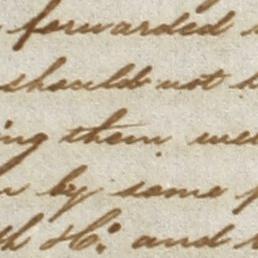 forwarded
should not
ing them
by some
and